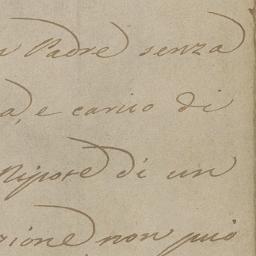 n Padre senza
a, e carico di
Nipote di un
zione non può